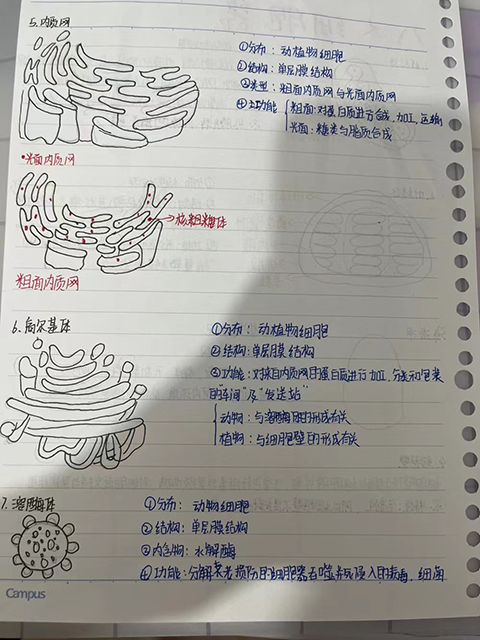 5.内质网
①分布：动植物细胞
②结构：单层膜结构
③类型：粗面内质网与光面内质网
④功能 粗面：对蛋白质进行合成，加工，运输
光面：糖类与脂质合成
•光面内质网
核糖体
粗面内质网
6.高尔基体
①分布：动植物细胞
②结构：单层膜结构
③功能：对来自内质网的蛋白质进行加工，分类和包装
的"车间"及"发送站"
动物：与溶酶体的形成有关
植物：与细胞壁的形成有关
7.溶酶体
①分布：动物细胞
②结构：单层膜结构
③内含物：水解酶
④功能：分解衰老损伤的细胞器吞噬杀死侵入的病毒，细菌
Campus